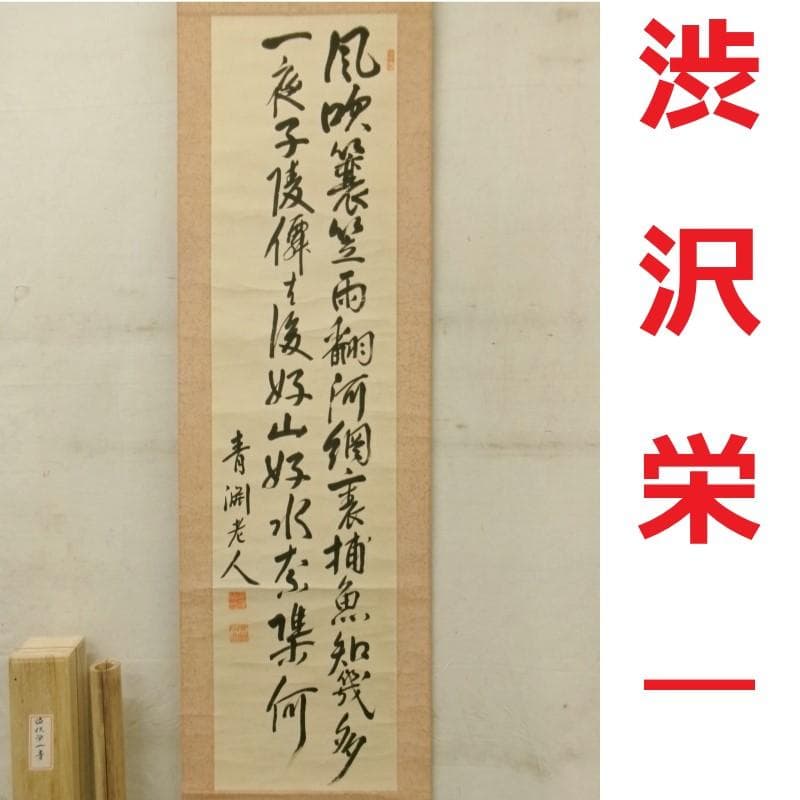 渋沢栄一
風吹簑笠雨翻河網裏捕魚知幾多
一従子陵僊去後好山好水奈渠何
青淵老人